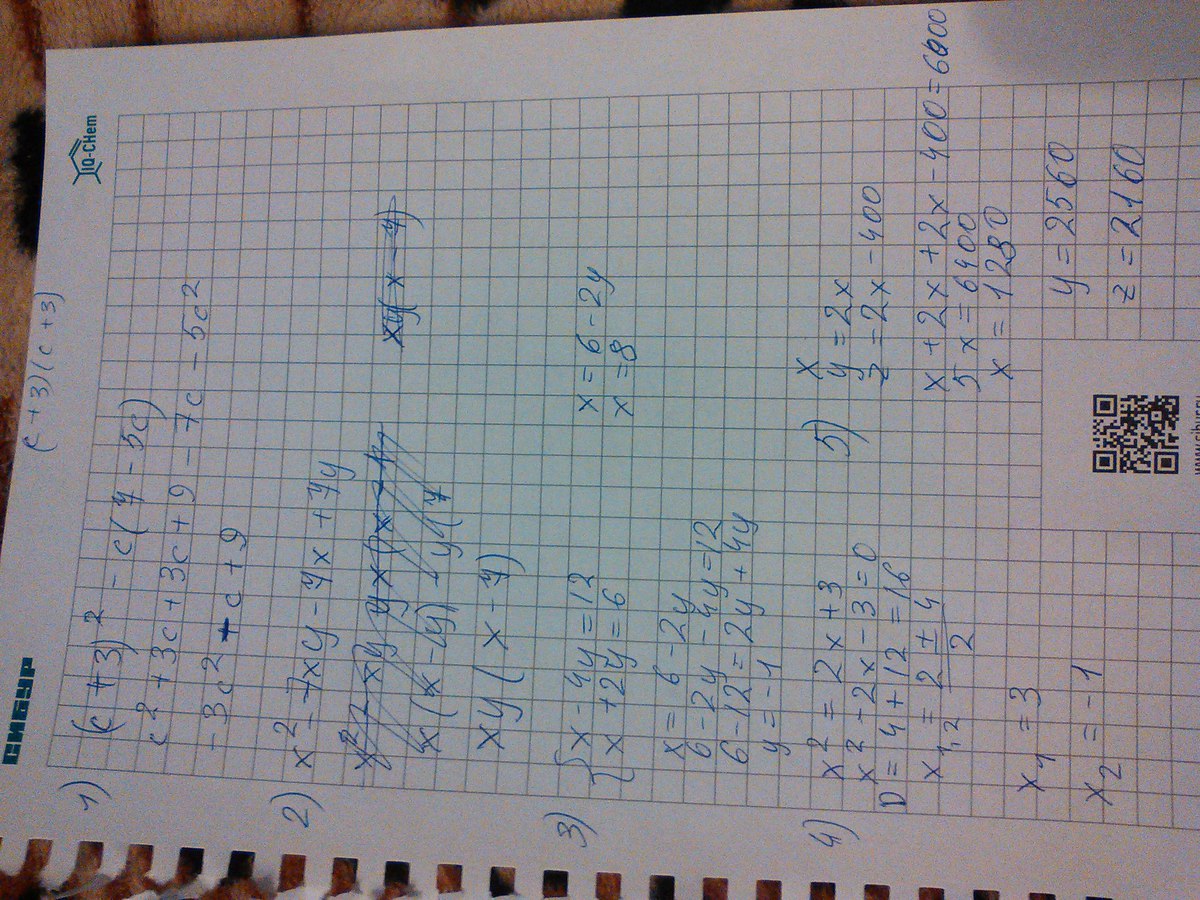 СИБУР
IQ-CHem
( +3)(c+3)
1) (c+3)² - c(7-5c)
c²+3c+3c+9-7c-5c²
-3c²-c+9
2) x²-7xy-7x+7y
x(x-y)-y(7
xy(x-7)
xy(x-7)
3) {x-4y=12
{x+2y=6
x=6-2y
6-2y-4y=12
6-12=2y+4y
y=-1
x=6-2y
x=8
4) x²=2x+3
x²-2x-3=0
D=4+12=16
x₁,₂=2±4
2
x₁=3
x₂=-1
5) x
y=2x
z=2x-400
x+2x+2x-400=6000
5x=6400
x=1280
y=2560
z=2160
www.sibur.ru